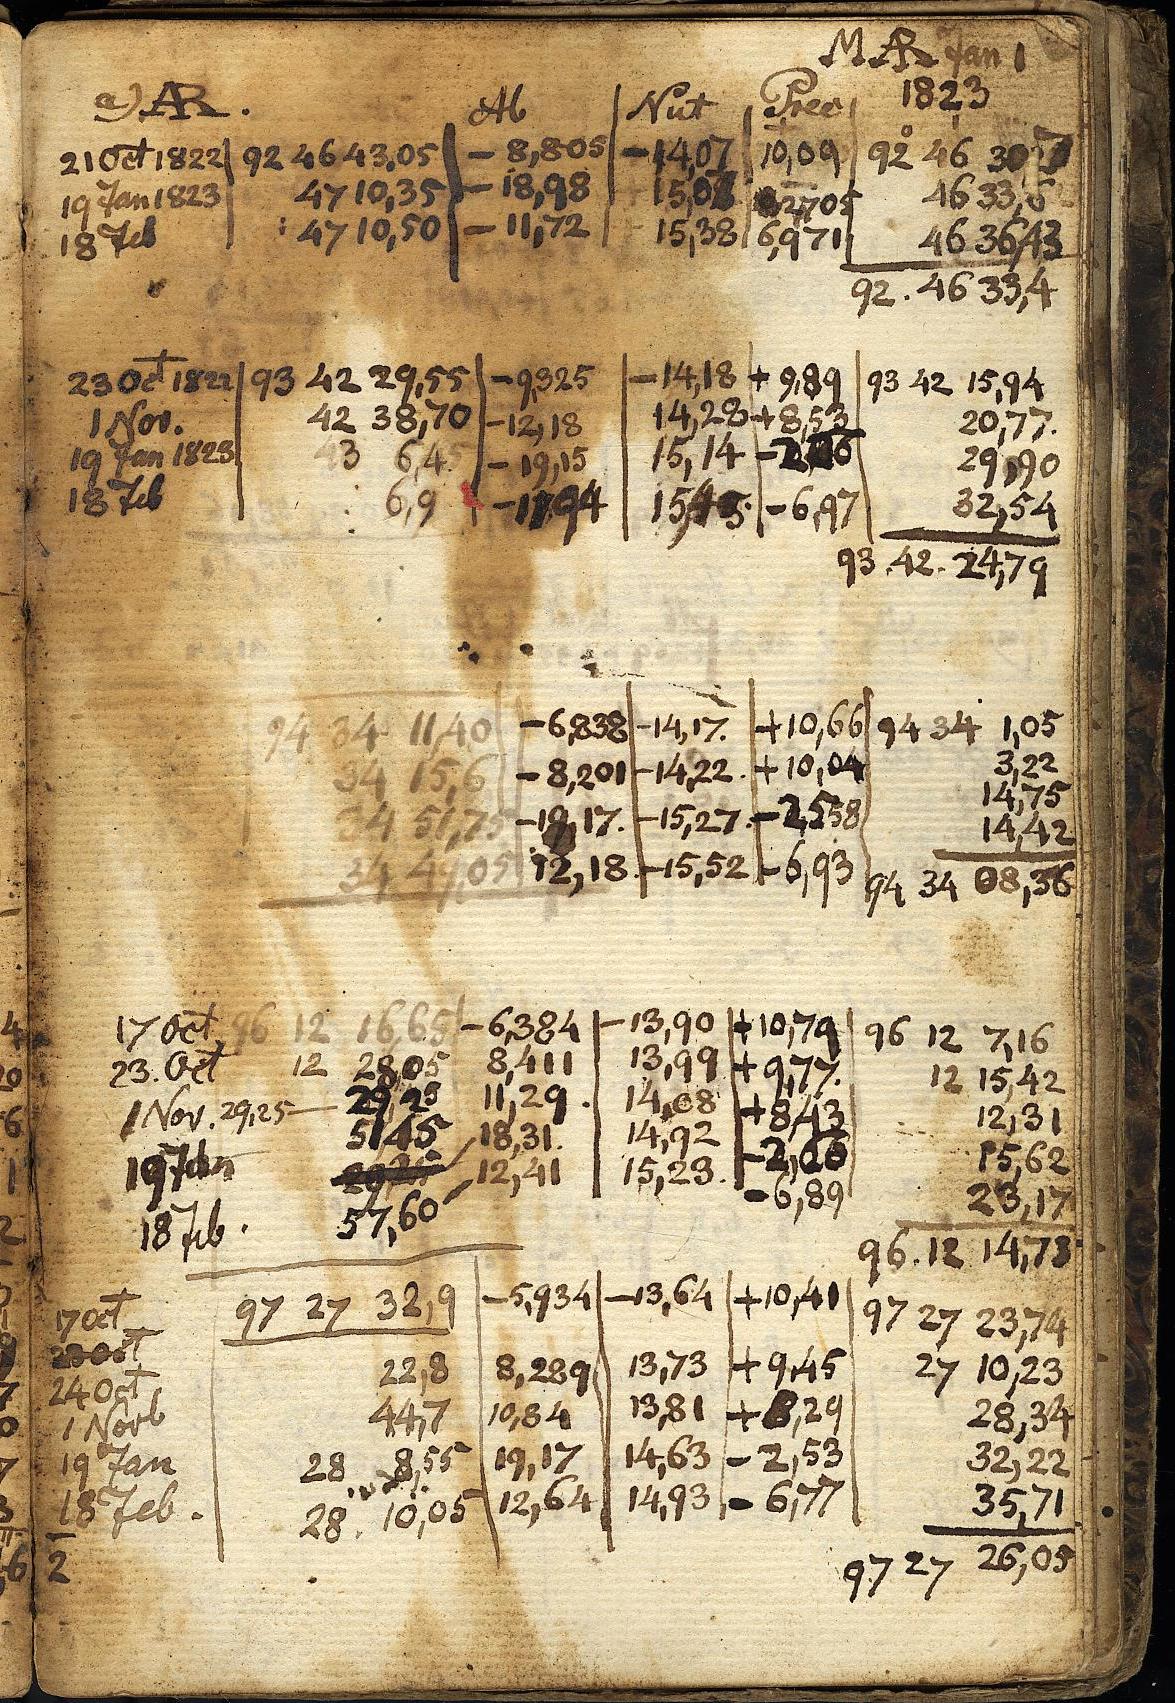 M AR Jan 1
1823
a) AR. Ab Nut Prec
21 Oct 1822 92 46 43,05 - 8,805 - 14,07 10,09 92° 46 30
19 Jan 1823 47 10,35 - 18,98 46 33,6
18 Feb 47 10,50 - 11,72 15,38 6,971 46 36,43
92. 46 33,4
23 Oct 1822 93 42 29,55 - 9,325 - 14,18 + 9,89 93 42 15,94
1 Nov. 42 38,70 - 12,18 14,28 + 8,53 20,77.
19 Jan 1823 43 6,45 - 19,15 15,14 29,90
18 Feb 6,9 15,45 - 6,97 32,54
93. 42. 24,79
94 34 11,40 - 6,838 - 14,17. + 10,66 94 34 1,05
34 15,6 - 8,201 - 14,22. + 10,04 3,22
34 51,75 - 19,17. - 15,27. - 2,558 14,75
34 49,05 12,18 - 15,52 - 6,93 14,42
94 34 08,36
17 Oct. 96 12 16,65 - 6,384 - 13,90 + 10,79 96 12 7,16
23. Oct 12 28,05 8,411 13,99 + 9,77. 12 15,42
1 Nov. 29,25 — 29,25 11,29. 14,08 + 8,43 12,31
19 Jan 51,45 18,31. 14,92 15,62
18 Feb. 57,60 12,41 15,23. - 6,89 23,17
96. 12 14,73
17 Oct 97 27 32,9 - 5,934 - 13,64 + 10,41 97 27 23,74
24 Oct 22,8 8,289 13,73 + 9,45 27 10,23
1 Novb 44,7 10,84 13,81 + 8,29 28,34
19 Jan 28 8,55 19,17 14,63 - 2,53 32,22
18 Feb. 28. 10,05 12,64 14,93 - 6,77 35,71
2 97 27 26,05